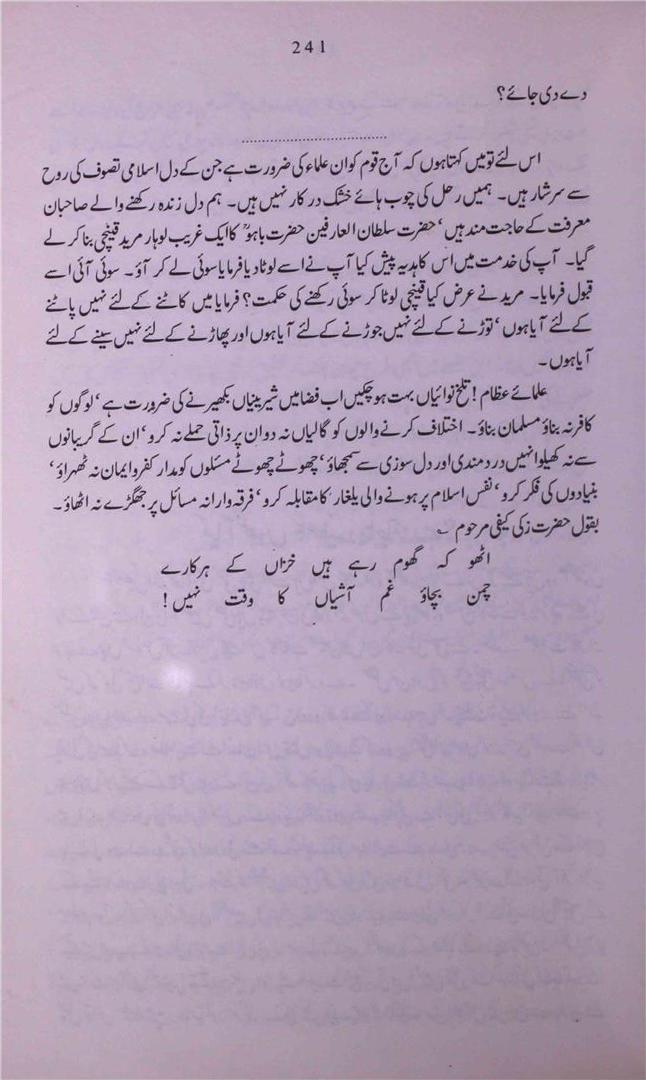 241
دے دی جائے؟
اس لئے تو میں کہتا ہوں کہ آج قوم کو ان علماء کی ضرورت ہے جن کے دل اسلامی تصوف کی روح
سے سرشار ہیں۔ ہمیں رحل کی چوب ہائے خشک درکار نہیں ہیں۔ ہم دل زندہ رکھنے والے صاحبان
معرفت کے حاجت مند ہیں‘ حضرت سلطان العارفین حضرت باہوؒ کا ایک غریب لوہار مرید قینچی بنا کر لے
گیا۔ آپ کی خدمت میں اس کا ہدیہ پیش کیا آپ نے اسے لوٹا دیا فرمایا سوئی لے کر آؤ۔ سوئی آئی اسے
قبول فرمایا۔ مرید نے عرض کیا قینچی لوٹا کر سوئی رکھنے کی حکمت؟ فرمایا میں کاٹنے کے لئے نہیں پاٹنے
کے لئے آیا ہوں‘ توڑنے کے لئے نہیں جوڑنے کے لئے آیا ہوں اور پھاڑنے کے لئے نہیں سینے کے لئے
آیا ہوں۔
علمائے عظام! تلخ نوائیاں بہت ہو چکیں اب فضا میں شیرینیاں بکھیرنے کی ضرورت ہے‘ لوگوں کو
کافر نہ بناؤ مسلمان بناؤ۔ اختلاف کرنے والوں کو گالیاں نہ دو ان پر ذاتی حملے نہ کرو‘ ان کے گریبانوں
سے نہ کھیلو انہیں دردمندی اور دل سوزی سے سمجھاؤ‘ چھوٹے چھوٹے مسئلوں کو مدار کفر و ایمان نہ ٹھہراؤ‘
بنیادوں کی فکر کرو‘ نفس اسلام پر ہونے والی یلغار کا مقابلہ کرو‘ فرقہ وارانہ مسائل پر جھگڑے نہ اٹھاؤ۔
بقول حضرت زکی کیفی مرحوم ؎
اٹھو کہ گھوم رہے ہیں خزاں کے ہرکارے
چمن بچاؤ غم آشیاں کا وقت نہیں!